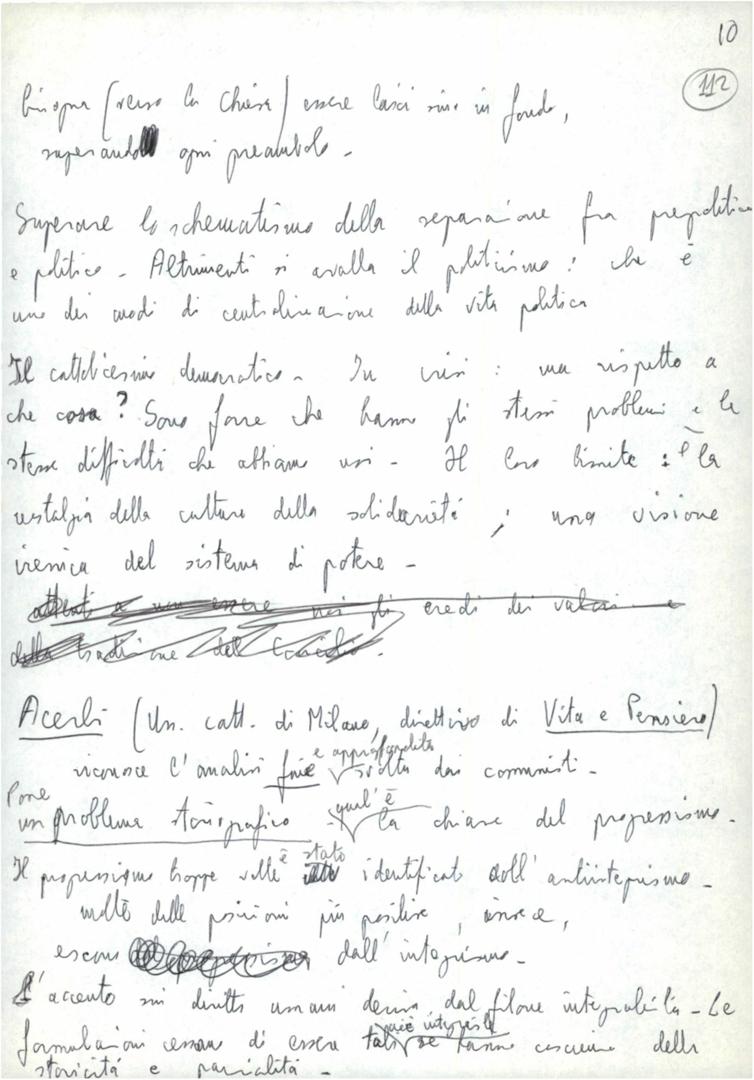 10
112
bisogna (verso la Chiesa) essere laici sino in fondo,
superando ogni preambolo -
Superare lo schematismo della separazione fra prepolitico
e politico - Altrimenti si avalla il politicismo: che è
uno dei modi di centralizzazione della vita politica
Il cattolicesimo democratico - In crisi: ma rispetto a
che cosa? Sono forze che hanno gli stessi problemi e le
stesse difficoltà che abbiamo noi - Il loro limite: è la
nostalgia della cultura della solidarietà; una visione
irenica del sistema di potere -
attenti a non essere noi gli eredi dei valori
della tradizione del Concilio.
Acerbi (Un. catt. di Milano, direttivo di Vita e Pensiero)
riconosce l'analisi fine e approfondita svolta dai comunisti -
Pone
un problema storiografico qual'è la chiave del progressismo -
Il progressismo troppe volte è stato identificato coll'antiintegrismo -
molte delle posizioni più positive, invece,
escono dall'integrismo -
L'accento sui diritti umani deriva dal filone integralista - Le
formulazioni cessano di essere tali, cioè integriste se hanno coscienza della
storicità e parzialità -